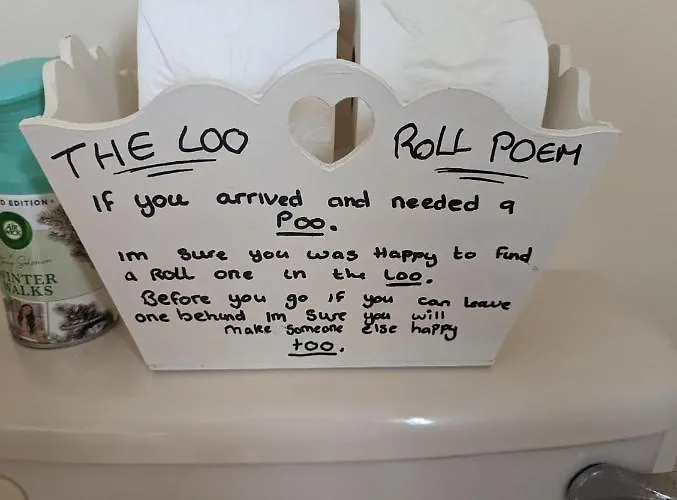 THE LOO ROLL POEM
If you arrived and needed a
Poo.
Im sure you was Happy to find
a Roll one in the Loo.
Before you go if you can leave
one behind Im sure you will
make someone else happy
too.
D EDITION
AIR WICK
WINTER
WALKS